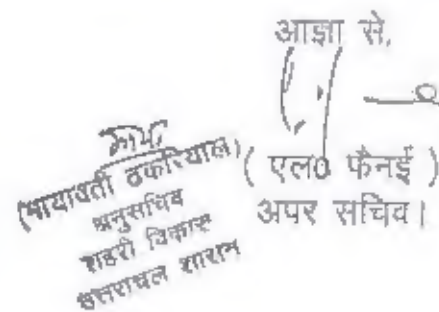 आज्ञा से,
( एल0 फैनई )
अपर सचिव।
(मायावती ढकरियाल)
अनुसचिव
शहरी विकास
उत्तरांचल शासन